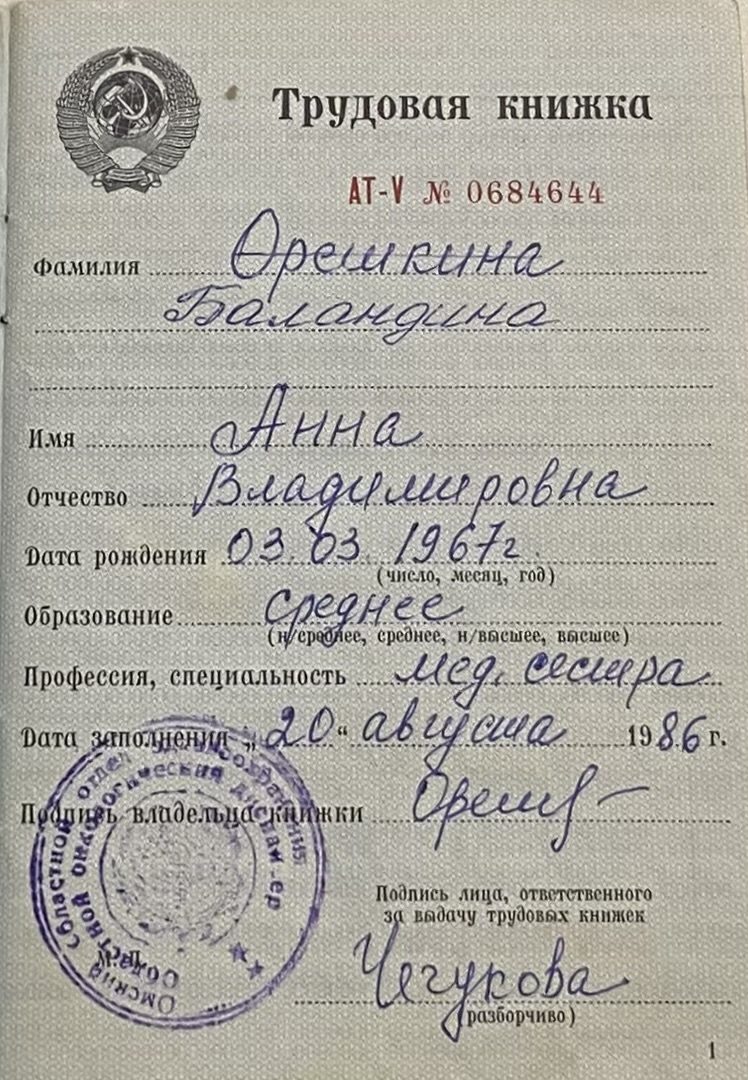 Трудовая книжка
АТ-V № 0684644
Фамилия Орешкина
Баландина
Имя Анна
Отчество Владимировна
Дата рождения 03.03.1967г.
(число, месяц, год)
Образование среднее
(н/среднее, среднее, н/высшее, высшее)
Профессия, специальность мед. сестра
Дата заполнения „20“ августа 1986 г.
Подпись владельца книжки Ореш
Подпись лица, ответственного
за выдачу трудовых книжек
Чегукова
(разборчиво)
М.П.
Омский областной отдел здравоохранения
Областной онкологический диспансер
1